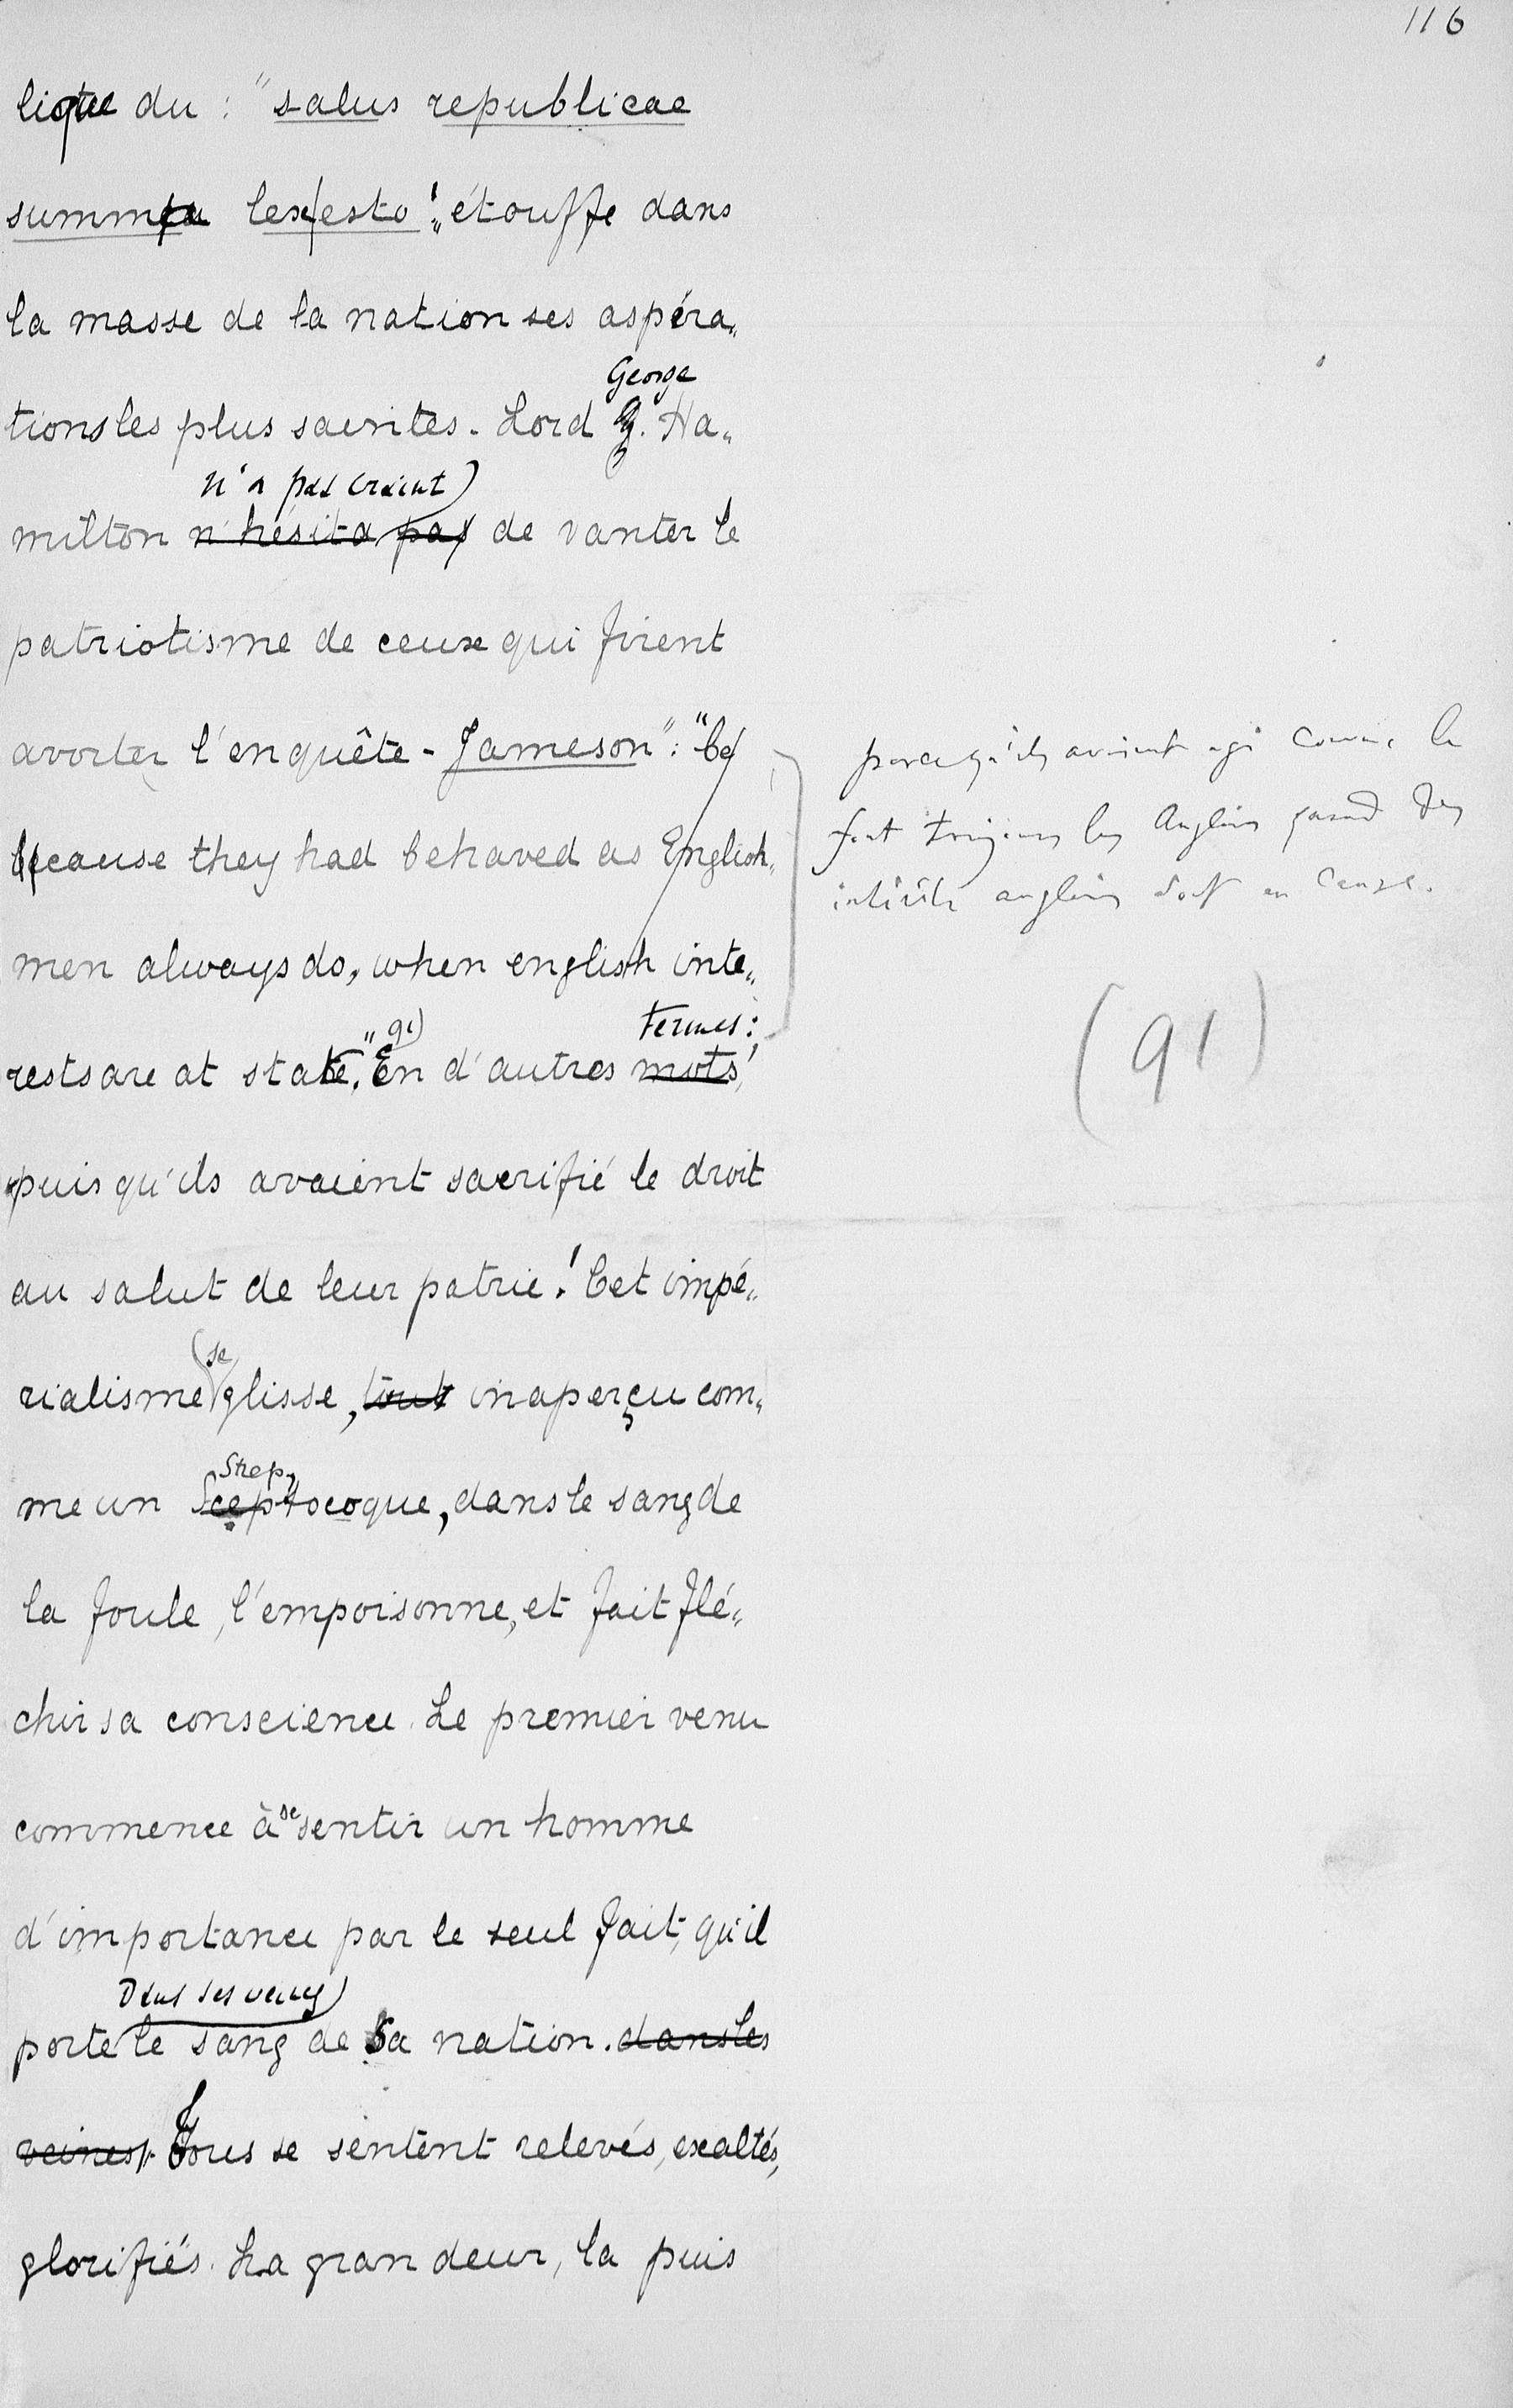 116
lique du : "salus republicae
summa lex esto!" étouffe dans
la masse de la nation ses aspéra„
George
tions les plus saerites. Lord G. Ha„
n'a pas craint)
milton n'hésita pas de vanter le
patriotisme de ceux qui firent
avorter l'enquête - Jameson": "be/
because they had behaved as English„
men always do, when english inte„
91) termes:
rests are at stake." En d'autres mots,
puis qu'ils avaient sacrifié le droit
au salut de leur patrie! Cet impé„
(se
rialisme glisse, tout inaperçu com„
Strep
me un Sceptocoque, dans le sang de
la foule, l'empoisonne, et fait flé„
chir sa conscience. Le premier venu
se
commence à sentir un homme
d'importance par le seul fait, qu'il
Dans ses veines)
porte le sang de sa nation. dans les
veines. Tous se sentent relevés, exaltés,
glorifiés. La grandeur, la puis
parcequ'ils avaient agi comme le
font toujours les Anglais quand des
intérêts anglais sont en cause.
(91)